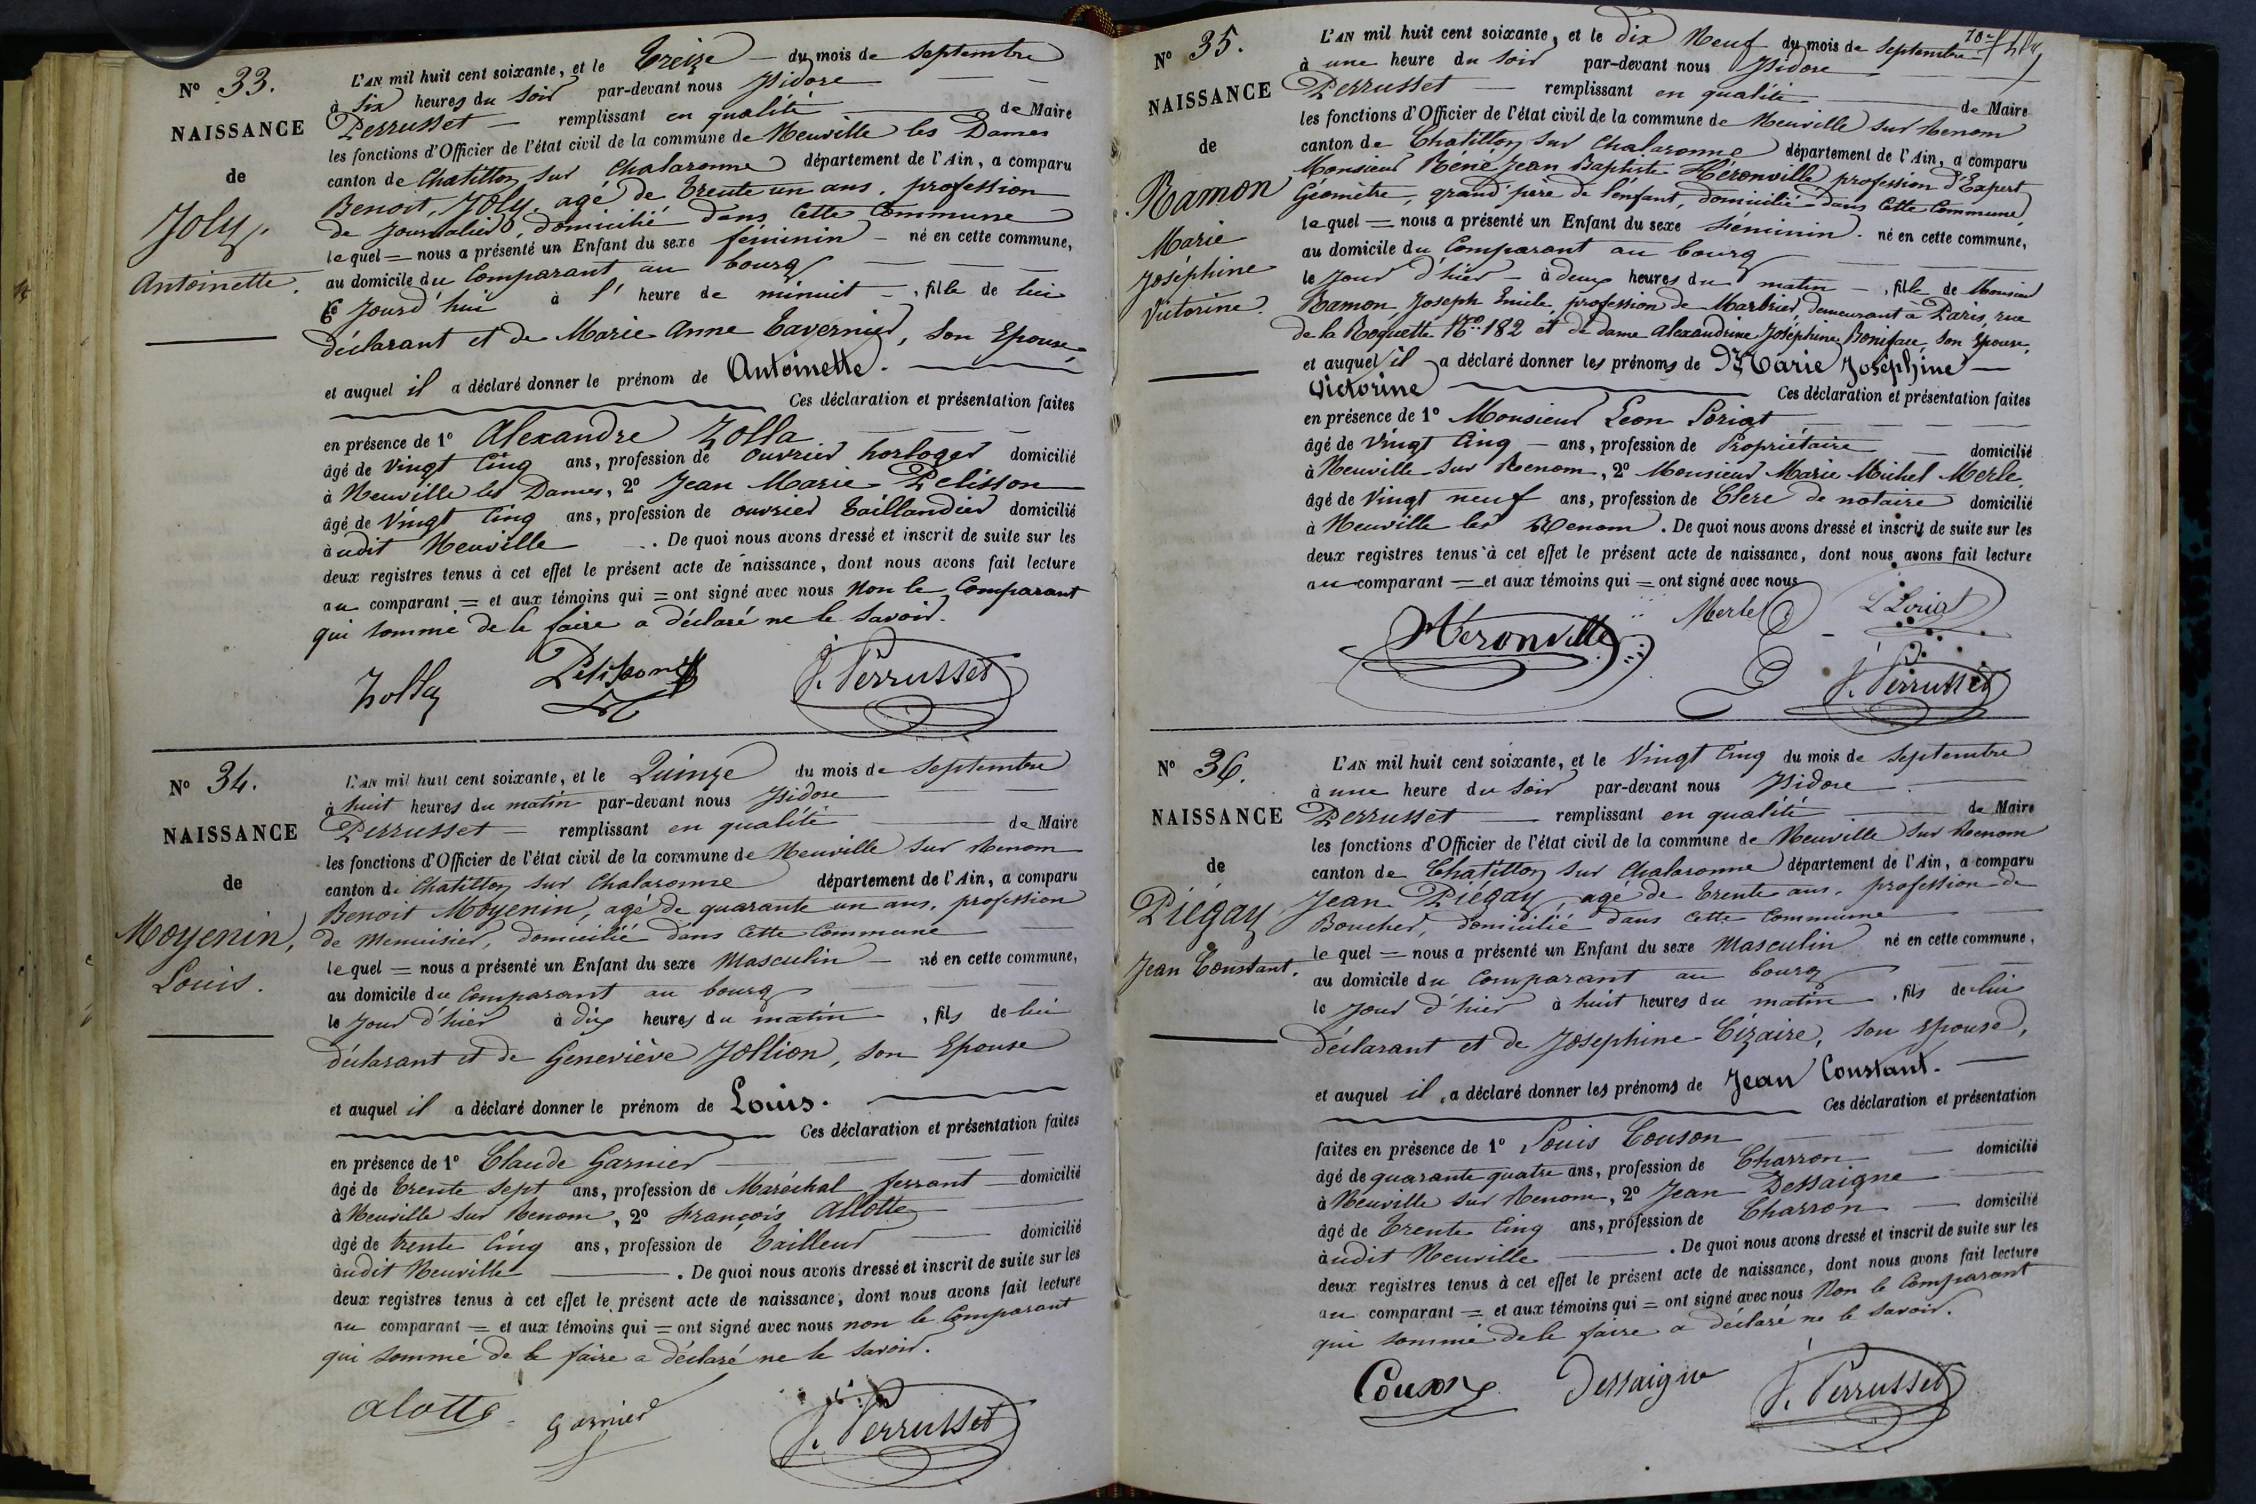 N° 33.
NAISSANCE
de
Joly.
Antoinette.
L'AN mil huit cent soixante, et le Treize du mois de Septembre
à Six heures du Soir par-devant nous Isidore
Perrusset remplissant en qualité de Maire
les fonctions d'Officier de l'état civil de la commune de Neuville les Dames
canton de Chatillon sur Chalaronne département de l'Ain, a comparu
Benoit, Joly, agé de Trente un ans, profession
de Journalier, domicilié dans Cette Commune
lequel = nous a présenté un Enfant du sexe féminin né en cette commune,
au domicile du Comparant au bourg
ce Jourd'hui à l' heure de minuit, fille de lui
déclarant et de Marie Anne Tavernier, Son Epouse,
et auquel il a déclaré donner le prénom de Antoinette.
Ces déclaration et présentation faites
en présence de 1° Alexandre Zolla
âgé de Vingt Cinq ans, profession de ouvrier horloger domicilié
à Neuville les Dames, 2° Jean Marie Pelisson
âgé de Vingt Cinq ans, profession de ouvrier Taillandier domicilié
àudit Neuville. De quoi nous avons dressé et inscrit de suite sur les
deux registres tenus à cet effet le présent acte de naissance, dont nous avons fait lecture
au comparant = et aux témoins qui = ont signé avec nous Non le Comparant
qui sommé de le faire a déclaré ne le Savoir.
Zolla Pelisson J. Perrusset
N° 34.
NAISSANCE
de
Moyenin,
Louis.
L'AN mil huit cent soixante, et le Quinze du mois de Septembre
à huit heures du matin par-devant nous Isidore
Perrusset remplissant en qualité de Maire
les fonctions d'Officier de l'état civil de la commune de Neuville sur Renom
canton de Chatillon sur Chalaronne département de l'Ain, a comparu
Benoit Moyenin, agé de quarante un ans, profession
de Menuisier, domicilié dans Cette Commune
lequel = nous a présenté un Enfant du sexe Masculin né en cette commune,
au domicile du Comparant au bourg
le Jour d'hier à dix heures du matin, fils de lui
déclarant et de Geneviève Jollion, son Epouse
et auquel il a déclaré donner le prénom de Louis.
Ces déclaration et présentation faites
en présence de 1° Claude Garnier
âgé de Trente Sept ans, profession de Maréchal ferrant domicilié
à Neuville sur Renom, 2° François Allotte
âgé de trente Cinq ans, profession de Tailleur domicilié
àudit Neuville. De quoi nous avons dressé et inscrit de suite sur les
deux registres tenus à cet effet le présent acte de naissance, dont nous avons fait lecture
au comparant = et aux témoins qui = ont signé avec nous non le Comparant
qui sommé de le faire a déclaré ne le Savoir.
alotte Garnier J. Perrusset
N° 35.
NAISSANCE
de
Ramon
Marie
Joséphine
Victorine.
L'AN mil huit cent soixante, et le dix Neuf du mois de Septembre
à une heure du Soir par-devant nous Isidore
Perrusset remplissant en qualité de Maire
les fonctions d'Officier de l'état civil de la commune de Neuville sur Renom
canton de Chatillon sur Chalaronne département de l'Ain, a comparu
Monsieur Réné Jean Baptiste Héronville profession d'Expert
Géomètre, grand'père de l'enfant, domicilié dans Cette Commune
lequel = nous a présenté un Enfant du sexe féminin. né en cette commune,
au domicile du Comparant au bourg
le Jour d'hier à deux heures du matin, fille de Monsieur
Ramon, Joseph Emile, profession de Marbrier, demeurant à Paris, rue
de la Roquette N° 182 et de dame Alexandrine Joséphine Boniface, Son Epouse,
et auquel il a déclaré donner les prénoms de Marie Joséphine
Victorine Ces déclaration et présentation faites
en présence de 1° Monsieur Leon Loriat
âgé de Vingt Cinq ans, profession de Propriétaire domicilié
à Neuville sur Renom, 2° Monsieur Marie Michel Merle
âgé de Vingt neuf ans, profession de Clerc de notaire domicilié
à Neuville les Renom. De quoi nous avons dressé et inscrit de suite sur les
deux registres tenus à cet effet le présent acte de naissance, dont nous avons fait lecture
au comparant = et aux témoins qui = ont signé avec nous
Héronville Merle L Loriat
J. Perrusset
N° 36.
NAISSANCE
de
Piégay
Jean Constant.
L'AN mil huit cent soixante, et le Vingt Cinq du mois de Septembre
à une heure du Soir par-devant nous Isidore
Perrusset remplissant en qualité de Maire
les fonctions d'Officier de l'état civil de la commune de Neuville sur Renom
canton de Chatillon sur Chalaronne département de l'Ain, a comparu
Jean Piégay, agé de trente ans, profession de
Boucher, domicilié dans Cette Commune
lequel = nous a présenté un Enfant du sexe Masculin né en cette commune,
au domicile du Comparant au bourg
le Jour d'hier à huit heures du matin, fils de lui
déclarant et de Joséphine Cizaire, Son Epouse,
et auquel il a déclaré donner les prénoms de Jean Constant.
Ces déclaration et présentation
faites en présence de 1° Louis Couson
âgé de quarante quatre ans, profession de Charron domicilié
à Neuville sur Renom, 2° Jean Dessaigne
âgé de Trente Cinq ans, profession de Charron domicilié
àudit Neuville. De quoi nous avons dressé et inscrit de suite sur les
deux registres tenus à cet effet le présent acte de naissance, dont nous avons fait lecture
au comparant = et aux témoins qui = ont signé avec nous Non le Comparant
qui sommé de le faire a déclaré ne le Savoir.
Couson Dessaigne J. Perrusset